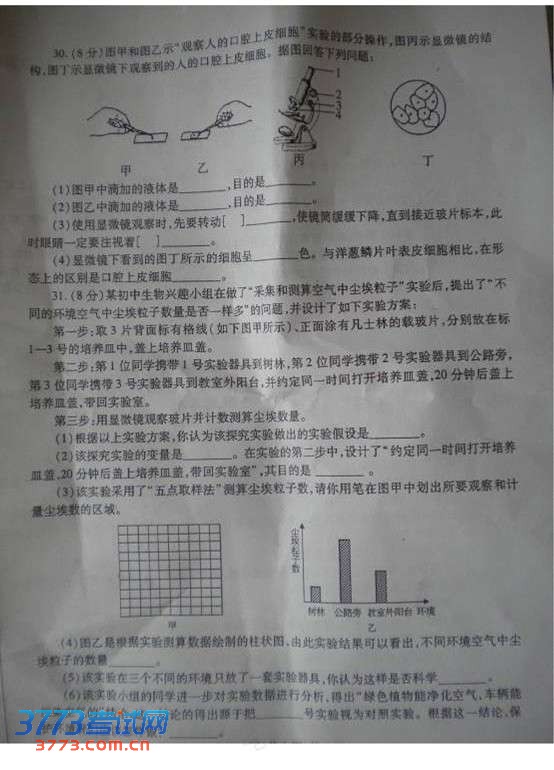 30.(8分)图甲和图乙示“观察人的口腔上皮细胞”实验的部分操作,图丙示显微镜的结
构,图丁示显微镜下观察到的人的口腔上皮细胞。据图回答下列问题:
1
2
3
4
甲 乙 丙 丁
(1)图甲中滴加的液体是______,目的是______。
(2)图乙中滴加的液体是______,目的是______。
(3)使用显微镜观察时,先要转动[ ]______,使镜筒缓缓下降,直到接近玻片标本,此
时眼睛一定要注视着[ ]______。
(4)显微镜下看到的图丁所示的细胞呈______色。与洋葱鳞片叶表皮细胞相比,在形
态上的区别是口腔上皮细胞______。
31.(8分)某初中生物兴趣小组在做了“采集和测算空气中尘埃粒子”实验后,提出了“不
同的环境空气中尘埃粒子数量是否一样多”的问题,并设计了如下实验方案:
第一步:取3片背面标有格线(如下图甲所示)、正面涂有凡士林的载玻片,分别放在标
1—3号的培养皿中,盖上培养皿盖。
第二步:第1位同学携带1号实验器具到树林,第2位同学携带2号实验器具到公路旁,
第3位同学携带3号实验器具到教室外阳台,并约定同一时间打开培养皿盖,20分钟后盖上
培养皿盖,带回实验室。
第三步:用显微镜观察玻片并计数测算尘埃数量。
(1)根据以上实验方案,你认为该探究实验做出的实验假设是______。
(2)该探究实验的变量是______。在实验的第二步中,设计了“约定同一时间打开培养
皿盖,20分钟后盖上培养皿盖,带回实验室”,其目的是______。
(3)该实验采用了“五点取样法”测算尘埃粒子数,请你用笔在图甲中划出所要观察和计
量尘埃数的区域。
尘埃粒子数
树林 公路旁 教室外阳台 环境
甲 乙
(4)图乙是根据实验测算数据绘制的柱状图。由此实验结果可以看出,不同环境空气中尘
埃粒子的数量______。
(5)该实验在三个不同的环境只放了一套实验器具,你认为这样是否科学______。
(6)该实验小组的同学进一步对实验数据进行分析,得出“绿色植物能净化空气,车辆能
论的得出源于把______号实验视为对照实验。根据这一结论,保
3773考试网
3773.com.cn